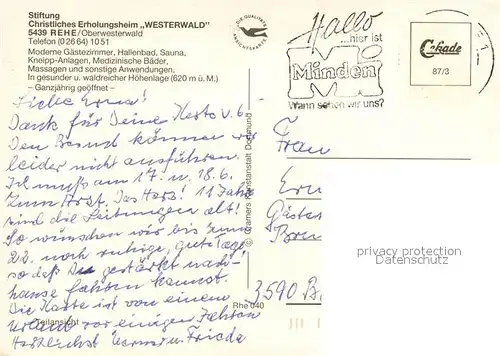 Stiftung
Christliches Erholungsheim „WESTERWALD"
5439 REHE/Oberwesterwald
Telefon (0 26 64) 10 51
Moderne Gästezimmer, Hallenbad, Sauna,
Kneipp-Anlagen, Medizinische Bäder,
Massagen und sonstige Anwendungen.
In gesunder u. waldreicher Höhenlage (620 m ü. M.)
– Ganzjährig geöffnet –
DIE QUALITÄTS
ANSICHTSKARTE
Hallo
...hier ist
Minden
Wann sehen wir uns?
Cekade
87/3
Liebe Erna!
Dank für Deine Karte v. 6
Den Besuch können wir
leider nicht ausführen.
Ich muß am 17. u. 18.6.
zum Arzt. Das Herz! 11 Jahre
sind die Leitungen alt!
So wünschen wir bis zum
22. noch ruhige, gute Tage
so daß Du gestärkt nach-
hause fahren kannst.
Die Karte ist von einem
Urlaub vor einigen Jahren
Herzlichst Werner u. Frieda
Teilansicht
Rhe 040
© Cramers Kunstanstalt Dortmund
Frau
Ern
Gäste
3590 B
privacy protection
Datenschutz